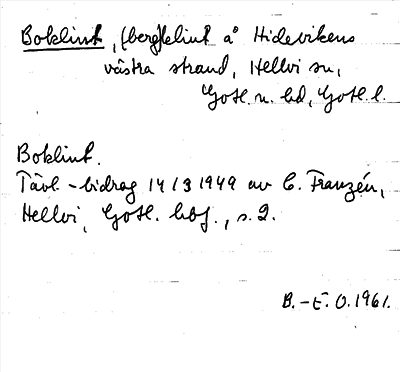 Boklint, (berg)klint å Hidevikens
västra strand, Hellvi sn,
Gotl. n. hd, Gotl. l.
Boklint.
Tävl-bidrag 14/3 1949 av C. Franzén,
Hellvi, Gotl. hbf., s. 2.
B.-E. O. 1961.